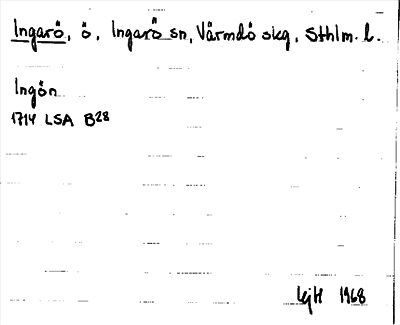 Ingarö, ö, Ingarö sn, Värmdö skg, Sthlm. l.
Ingön
1714 LSA B28
1968